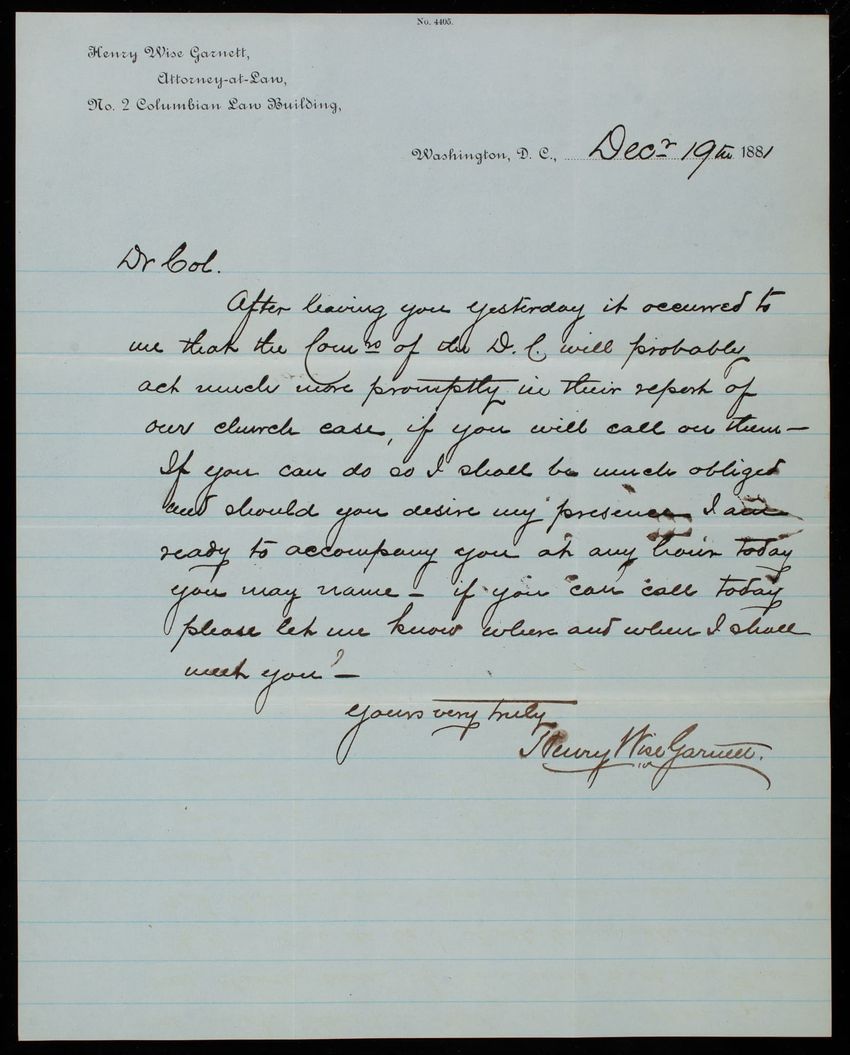 No. 4405.
Henry Wise Garnett,
Attorney-at-Law,
No. 2 Columbian Law Building,
Washington, D. C., Decr 19th 1881
Dr Col.
After leaving you yesterday it occurred to
me that the Comrs of the D. C. will probably
act much more promptly in their report of
our church case, if you will call on them—
If you can do so I shall be much obliged
and should you desire my presence I am
ready to accompany you at any hour today
you may name — if you can call today
please let me know where and when I shall
meet you? —
Yours very truly
Henry Wise Garnett.